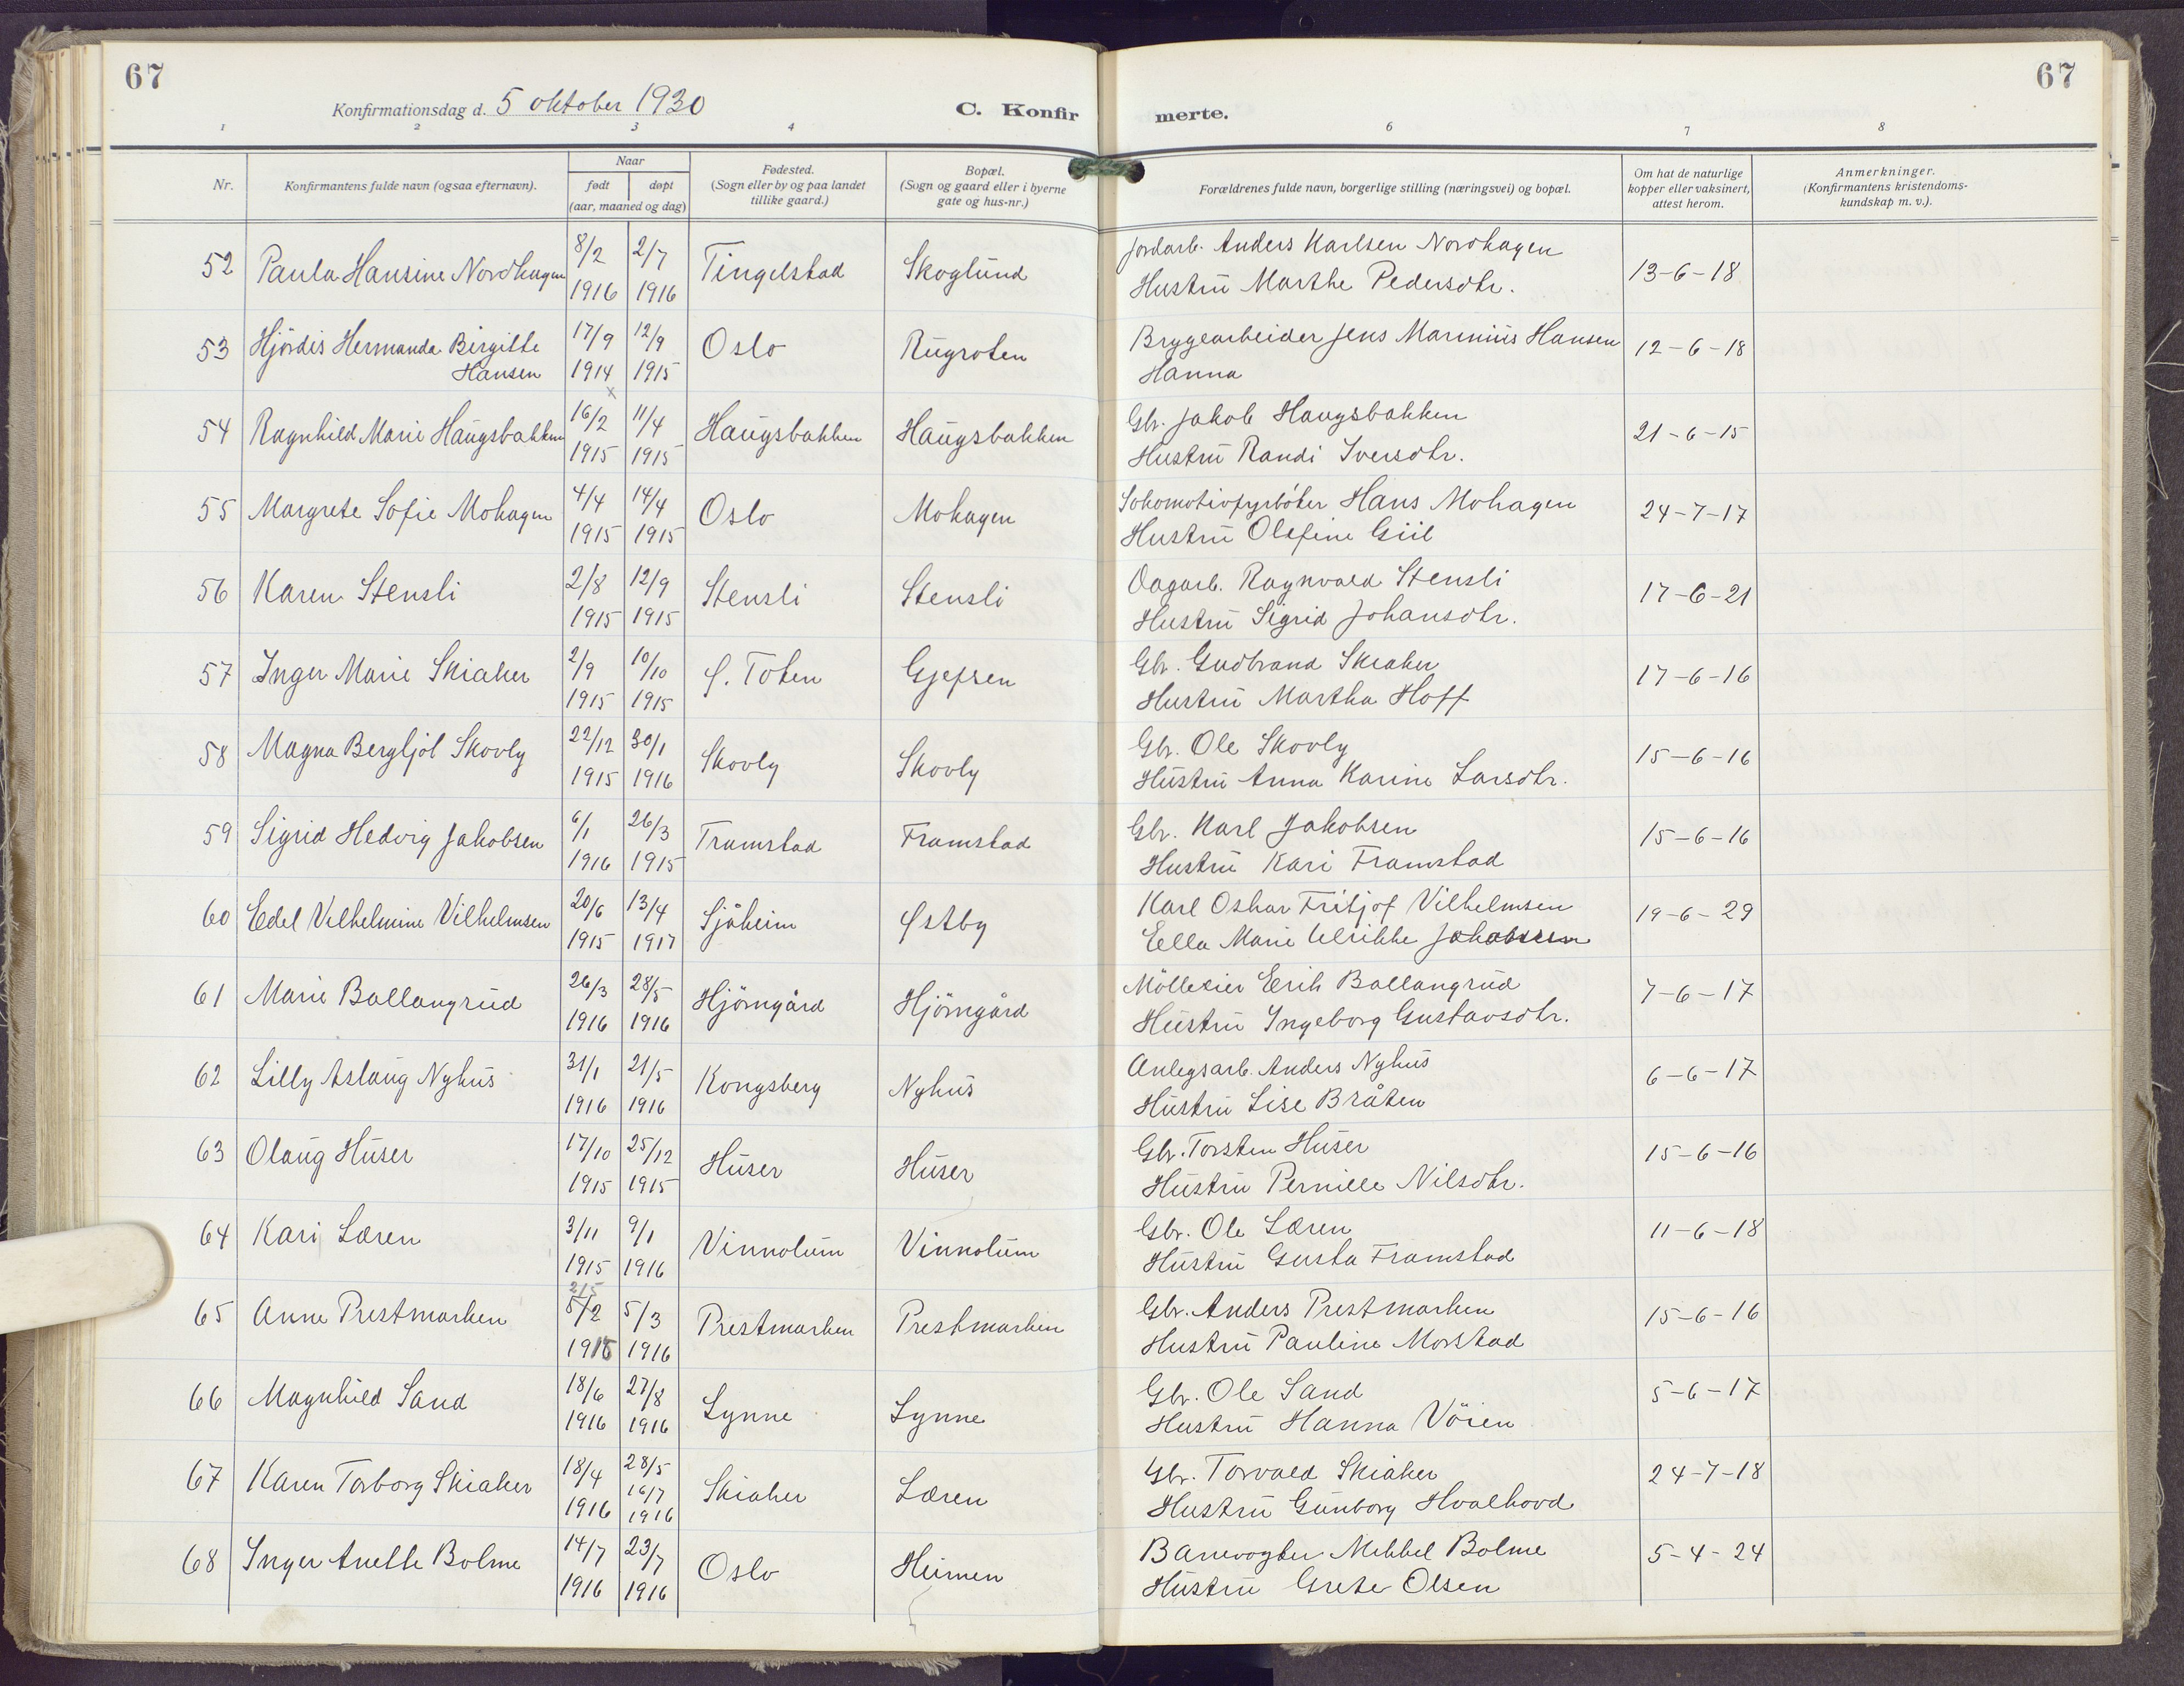 67
67
Konfirmationsdag d. 5 oktober 1930
C. Konfirmerte.
1 2 3 4 6 7 8
Nr. Konfirmantens fulde navn (ogsaa efternavn). Naar født døpt (aar, maaned og dag) Fødested. (Sogn eller by og paa landet tillike gaard.) Bopæl. (Sogn og gaard eller i byerne gate og hus-nr.) Forældrenes fulde navn, borgerlige stilling (næringsvei) og bopæl. Om hat de naturlige kopper eller vaksinert, attest herom. Anmerkninger. (Konfirmantens kristendoms-kundskap m. v.).
52 Paula Hansine Nordhagen 8/2 1916 2/7 1916 Tingelstad Skoglund Jordarb. Anders Karlsen Nordhagen
Hustru Marthe Pedersdtr. 13-6-18
53 Hjördis Hermanda Birgitte Hansen 17/9 1914 12/9 1915 Oslo Rugroten Bryggearbeider Jens Marinius Hansen
Hanna 12-6-18
54 Ragnhild Marie Haugsbakken 16/2 1915 11/4 1915 Haugsbakken Haugsbakken Gbr. Jakob Haugsbakken
Hustru Randi Iversdtr. 21-6-15
55 Margrete Sofie Mohagen 4/4 1915 14/4 1915 Oslo Mohagen Lokomotivfyrböter Hans Mohagen
Hustru Olefine Giil 24-7-17
56 Karen Stensli 2/8 1915 12/9 1915 Stensli Stensli Dagarb. Ragnvald Stensli
Hustru Sigrid Johansdtr. 17-6-21
57 Inger Marie Skiaker 2/9 1915 10/10 1915 Ø. Toten Gjefsen Gbr. Gudbrand Skiaker
Hustru Martha Hoff 17-6-16
58 Magna Bergljot Skovly 22/12 1915 30/1 1916 Skovly Skovly Gbr. Ole Skovly
Hustru Anna Karine Larsdtr. 15-6-16
59 Sigrid Hedvig Jakobsen 6/1 1916 26/3 1915 Framstad Framstad Gbr. Karl Jakobsen
Hustru Kari Framstad 15-6-16
60 Edel Vilhelmine Vilhelmsen 20/6 1915 13/4 1917 Sjåheim Østby Karl Oskar Fritjof Vilhelmsen
Ella Marie Ulrikke Jakobsen 19-6-29
61 Marie Ballangrud 26/3 1916 28/5 1916 Hjörngård Hjörngård Mölleeier Erik Ballangrud
Hustru Ingeborg Gustavsdtr. 7-6-17
62 Lilly Aslaug Nyhus 31/1 1916 21/5 1916 Kongsberg Nyhus Anlegsarb. Anders Nyhus
Hustru Lise Bråten 6-6-17
63 Olaug Huser 17/10 1915 25/12 1915 Huser Huser Gbr. Torsten Huser
Hustru Pernille Nilsdtr. 15-6-16
64 Kari Læren 3/11 1915 9/1 1916 Vinnolum Vinnolum Gbr. Ole Læren
Hustru Gusta Framstad 11-6-18
65 Anne Prestmarken 5/2 5/3 1916 Prestmarken Prestmarken Gbr. Anders Prestmarken
Hustru Pauline Morstad 15-6-16
66 Magnhild Sand 18/6 1916 27/8 1916 Lynne Lynne Gbr. Ole Sand
Hustru Hanna Vöien 5-6-17
67 Karen Torborg Skiaker 18/4 1916 28/5 16/7 1916 Skiaker Læren Gbr. Torvald Skiaker
Hustru Gunborg Hvalhovd 24-7-18
68 Inger Anette Bolme 14/7 1916 23/7 1916 Oslo Heimen Banevogter Mekkel Bolme
Hustru Grete Olsen 5-4-24